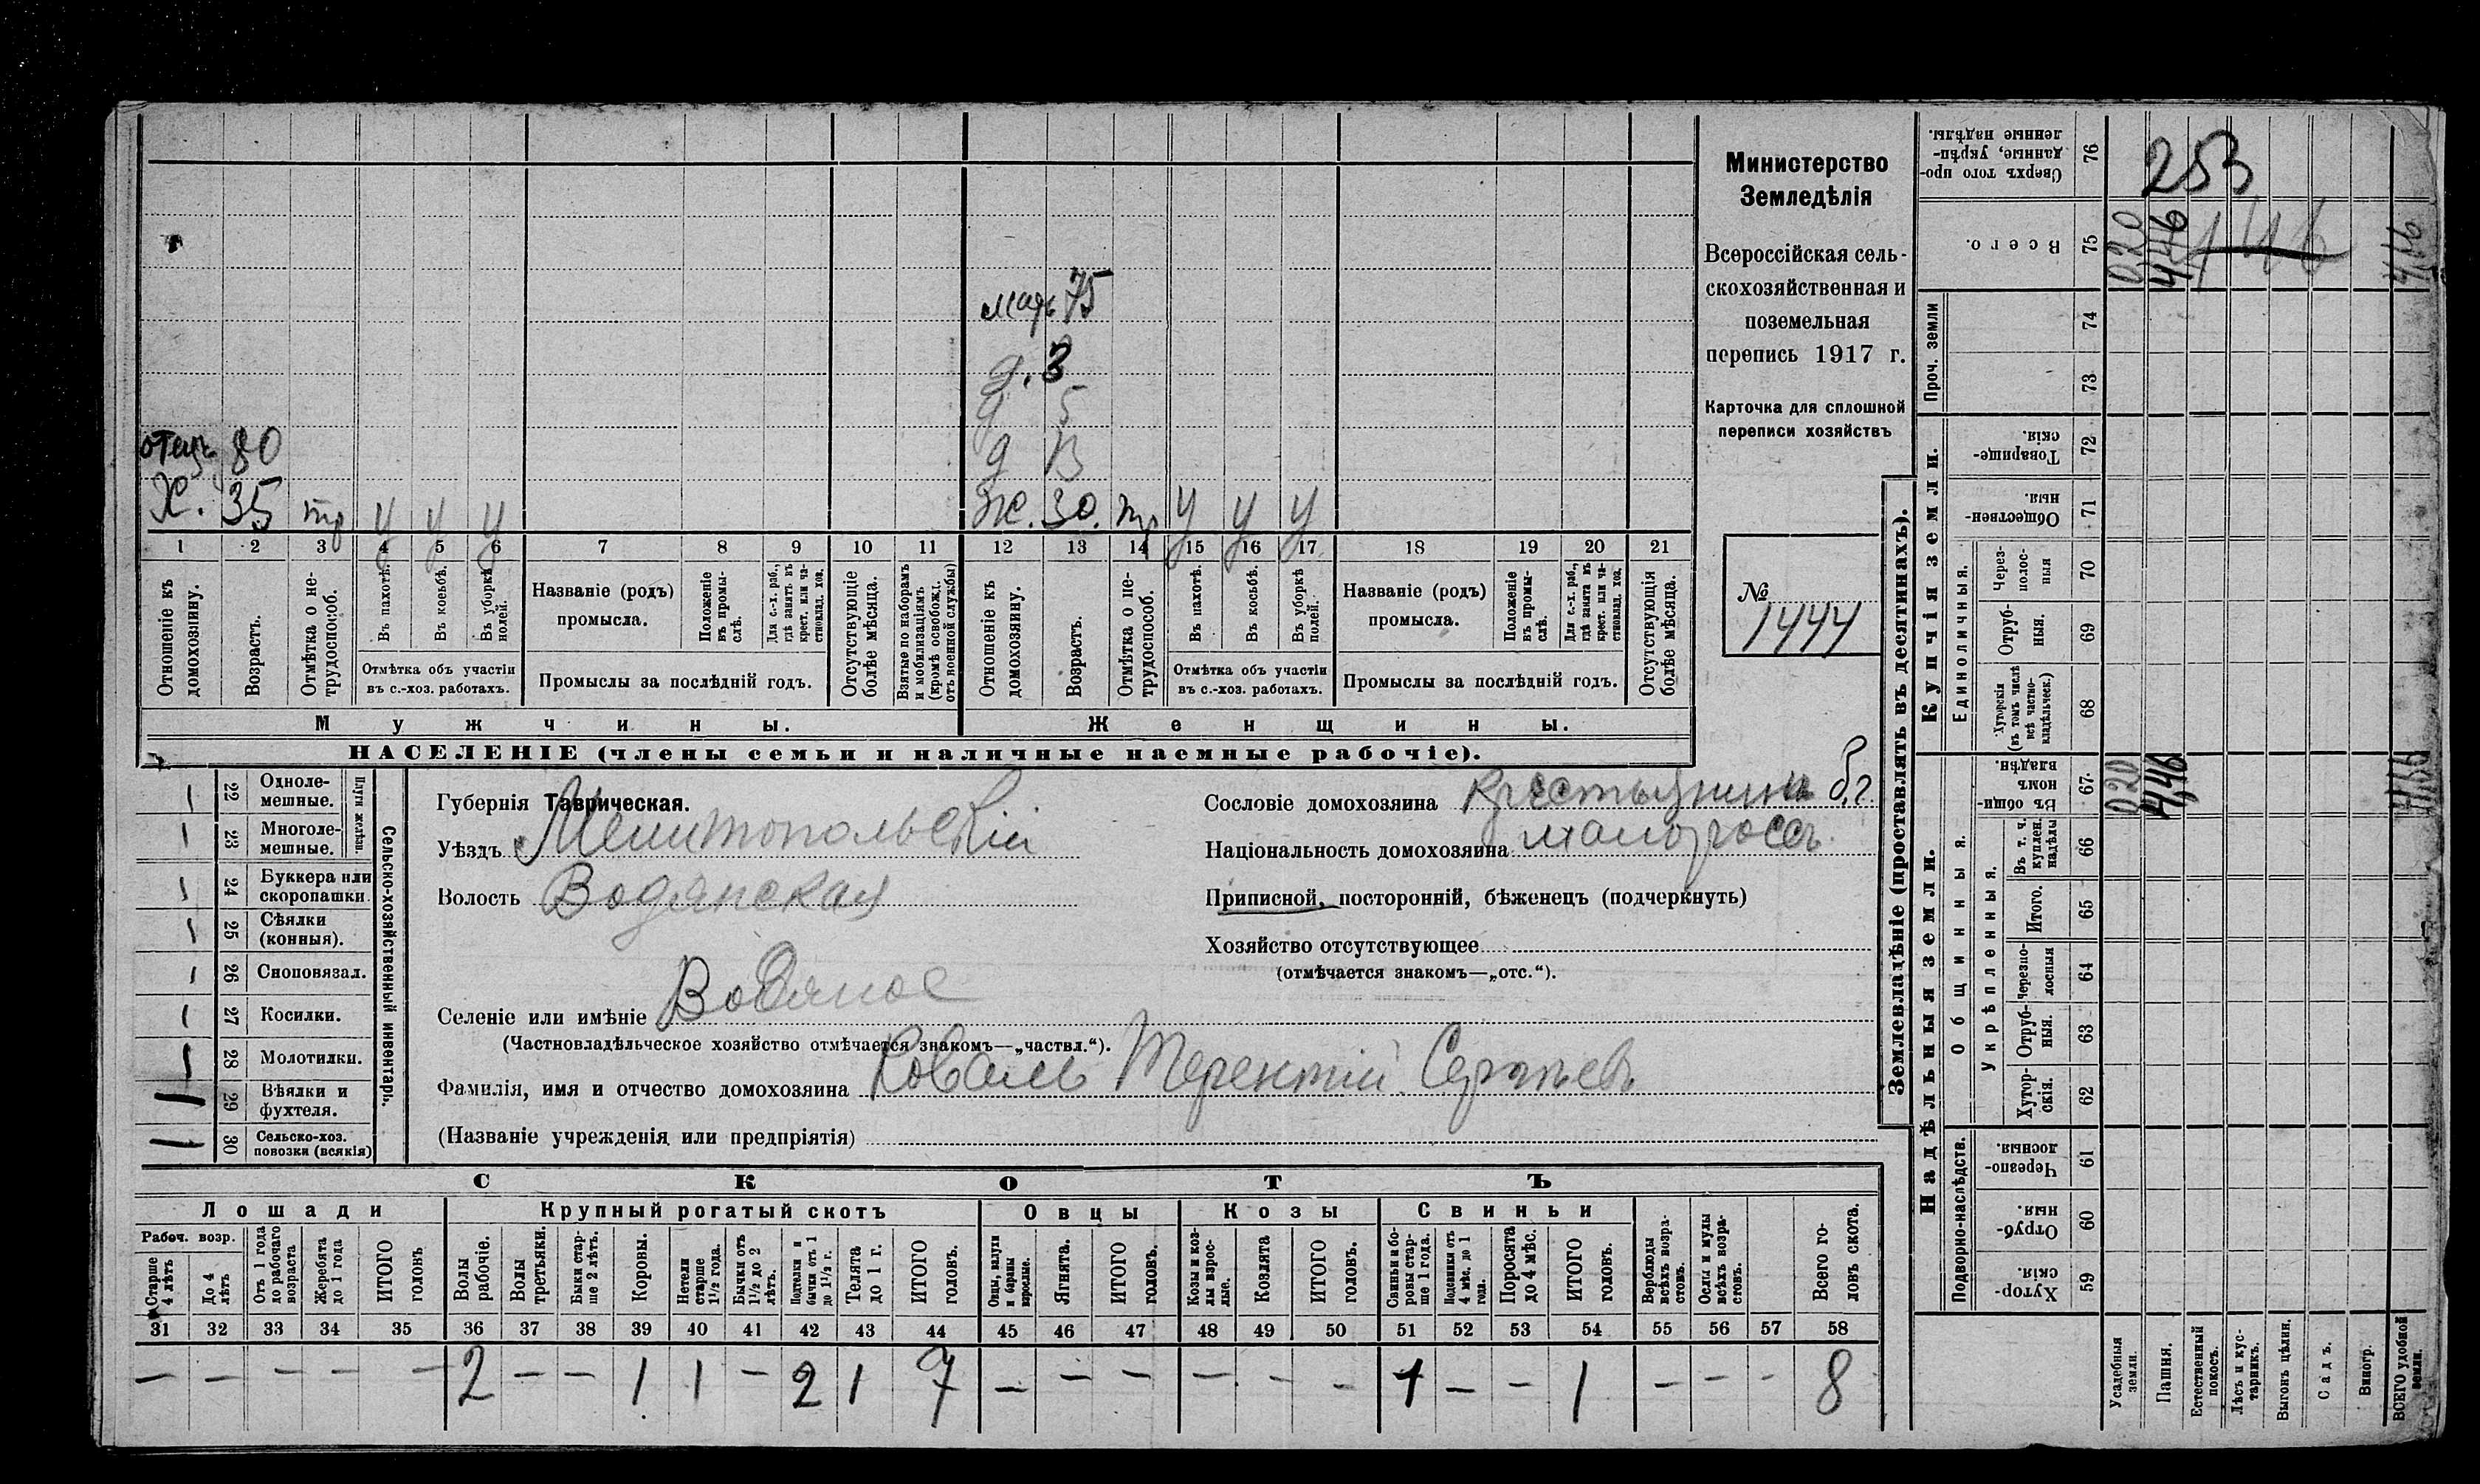 мать 75
д. 3
д 5
отецъ 80 д 13
Х. 35 тр у у у Ж. 30. тр у у у
1 2 3 4 5 6 7 8 9 10 11 12 13 14 15 16 17 18 19 20 21
Отношеніе къ домохозяину.
Возрастъ.
Отмѣтка о нетрудоспособ.
Въ пахотѣ.
Въ косьбѣ.
Въ уборкѣ полей.
Отмѣтка объ участіи
въ с.-хоз. работахъ.
Названіе (родъ)
промысла.
Положеніе въ промыслѣ.
Для с.-х. раб., гдѣ занятъ въ крест. или частновлад. хоз.
Промыслы за послѣдній годъ.
Отсутствующіе болѣе мѣсяца.
Взятые по наборамъ и мобилизаціямъ (кромѣ освобожд. отъ военной службы)
Отношеніе къ домохозяину.
Возрастъ.
Отмѣтка о нетрудоспособ.
Въ пахотѣ.
Въ косьбѣ.
Въ уборкѣ полей.
Отмѣтка объ участіи
въ с.-хоз. работахъ.
Названіе (родъ)
промысла.
Положеніе въ промыслѣ.
Для с.-х. раб., гдѣ занята въ крест. или частновлад. хоз.
Промыслы за послѣдній годъ.
Отсутствующія болѣе мѣсяца.
Мужчины. Женщины.
НАСЕЛЕНІЕ (члены семьи и наличные наемные рабочіе).
Министерство
Земледѣлія
Всероссійская сель-
скохозяйственная и
поземельная
перепись 1917 г.
Карточка для сплошной
переписи хозяйствъ
№
1444
Сельско-хозяйственный инвентарь.
Плуги желѣзн.
22 Одноле-
мешные.
23 Многоле-
мешные.
24 Буккера или
скоропашки
25 Сѣялки
(конныя).
26 Сноповязал.
27 Косилки.
28 Молотилки.
29 Вѣялки и
фухтеля.
30 Сельско-хоз.
повозки (всякія)
Губернія Таврическая.
Уѣздъ Мелитопольскій
Волость Водянская
Селеніе или имѣніе Водяное
(Частновладѣльческое хозяйство отмѣчается знакомъ—„частвл.“).
Фамилія, имя и отчество домохозяина Коваль Терентій Сергѣевъ
(Названіе учрежденія или предпріятія)
Сословіе домохозяина Крестьянинъ б.г.
Національность домохозяина малороссъ
Приписной, посторонній, бѣженецъ (подчеркнуть)
Хозяйство отсутствующее
(отмѣчается знакомъ—„отс.“).
СКОТЪ
Лошади Крупный рогатый скотъ Овцы Козы Свиньи
Рабоч. возр.
Старше 4 лѣтъ
До 4 лѣтъ
Отъ 1 года до рабочаго возраста
Жеребята до 1 года
ИТОГО головъ
Волы рабочіе.
Волы третьяки.
Быки старше 2 лѣтъ.
Коровы.
Нетели старше 1½ года.
Бычки отъ 1½ до 2 лѣтъ.
Подтелки и бычки отъ 1 до 1½ г.
Телята до 1 г.
ИТОГО головъ.
Овцы, валухи и бараны взрослые.
Ягнята.
ИТОГО головъ.
Козы и козлы взрослые.
Козлята
ИТОГО головъ.
Свиньи и боровы старше 1 года.
Подсвинки отъ 4 мѣс. до 1 года.
Поросята до 4 мѣс.
ИТОГО головъ.
Верблюды всѣхъ возрастовъ.
Ослы и мулы всѣхъ возрастовъ.
Всего головъ скота.
31 32 33 34 35 36 37 38 39 40 41 42 43 44 45 46 47 48 49 50 51 52 53 54 55 56 57 58
— — — — — 2 — — 1 1 — 2 1 7 — — — — — — 1 — — 1 — — — 8
Землевладѣніе (проставлять въ десятинахъ).
Купчія земли.
Надѣльныя земли.
Сверхъ того проданные, укрѣпленные надѣлы. 76 253
Всего. 75 0,20 4,46
Проч. земли 74 73
Товарищескія. 72
Общественныя. 71
Единоличныя.
Черезполосныя 70
Отрубныя. 69
Хуторскія (въ томъ числѣ всѣ частновладѣльческ.) 68
Общинныя.
Въ общинномъ владѣн. 67 0,20 4,46 4,66
Укрѣпленныя.
Въ т. ч. куплен. надѣлы 66
Итого. 65
Черезполосныя 64
Отрубныя. 63
Хуторскія. 62
Подворно-наслѣдств.
Черезполосныя 61
Отрубныя. 60
Хуторскія. 59
Усадебныя земли.
Пашня.
Естественный покосъ.
Лѣсъ и кустарникъ.
Выгонъ цѣлин.
Садъ.
Виногр.
ВСЕГО удобной земли.